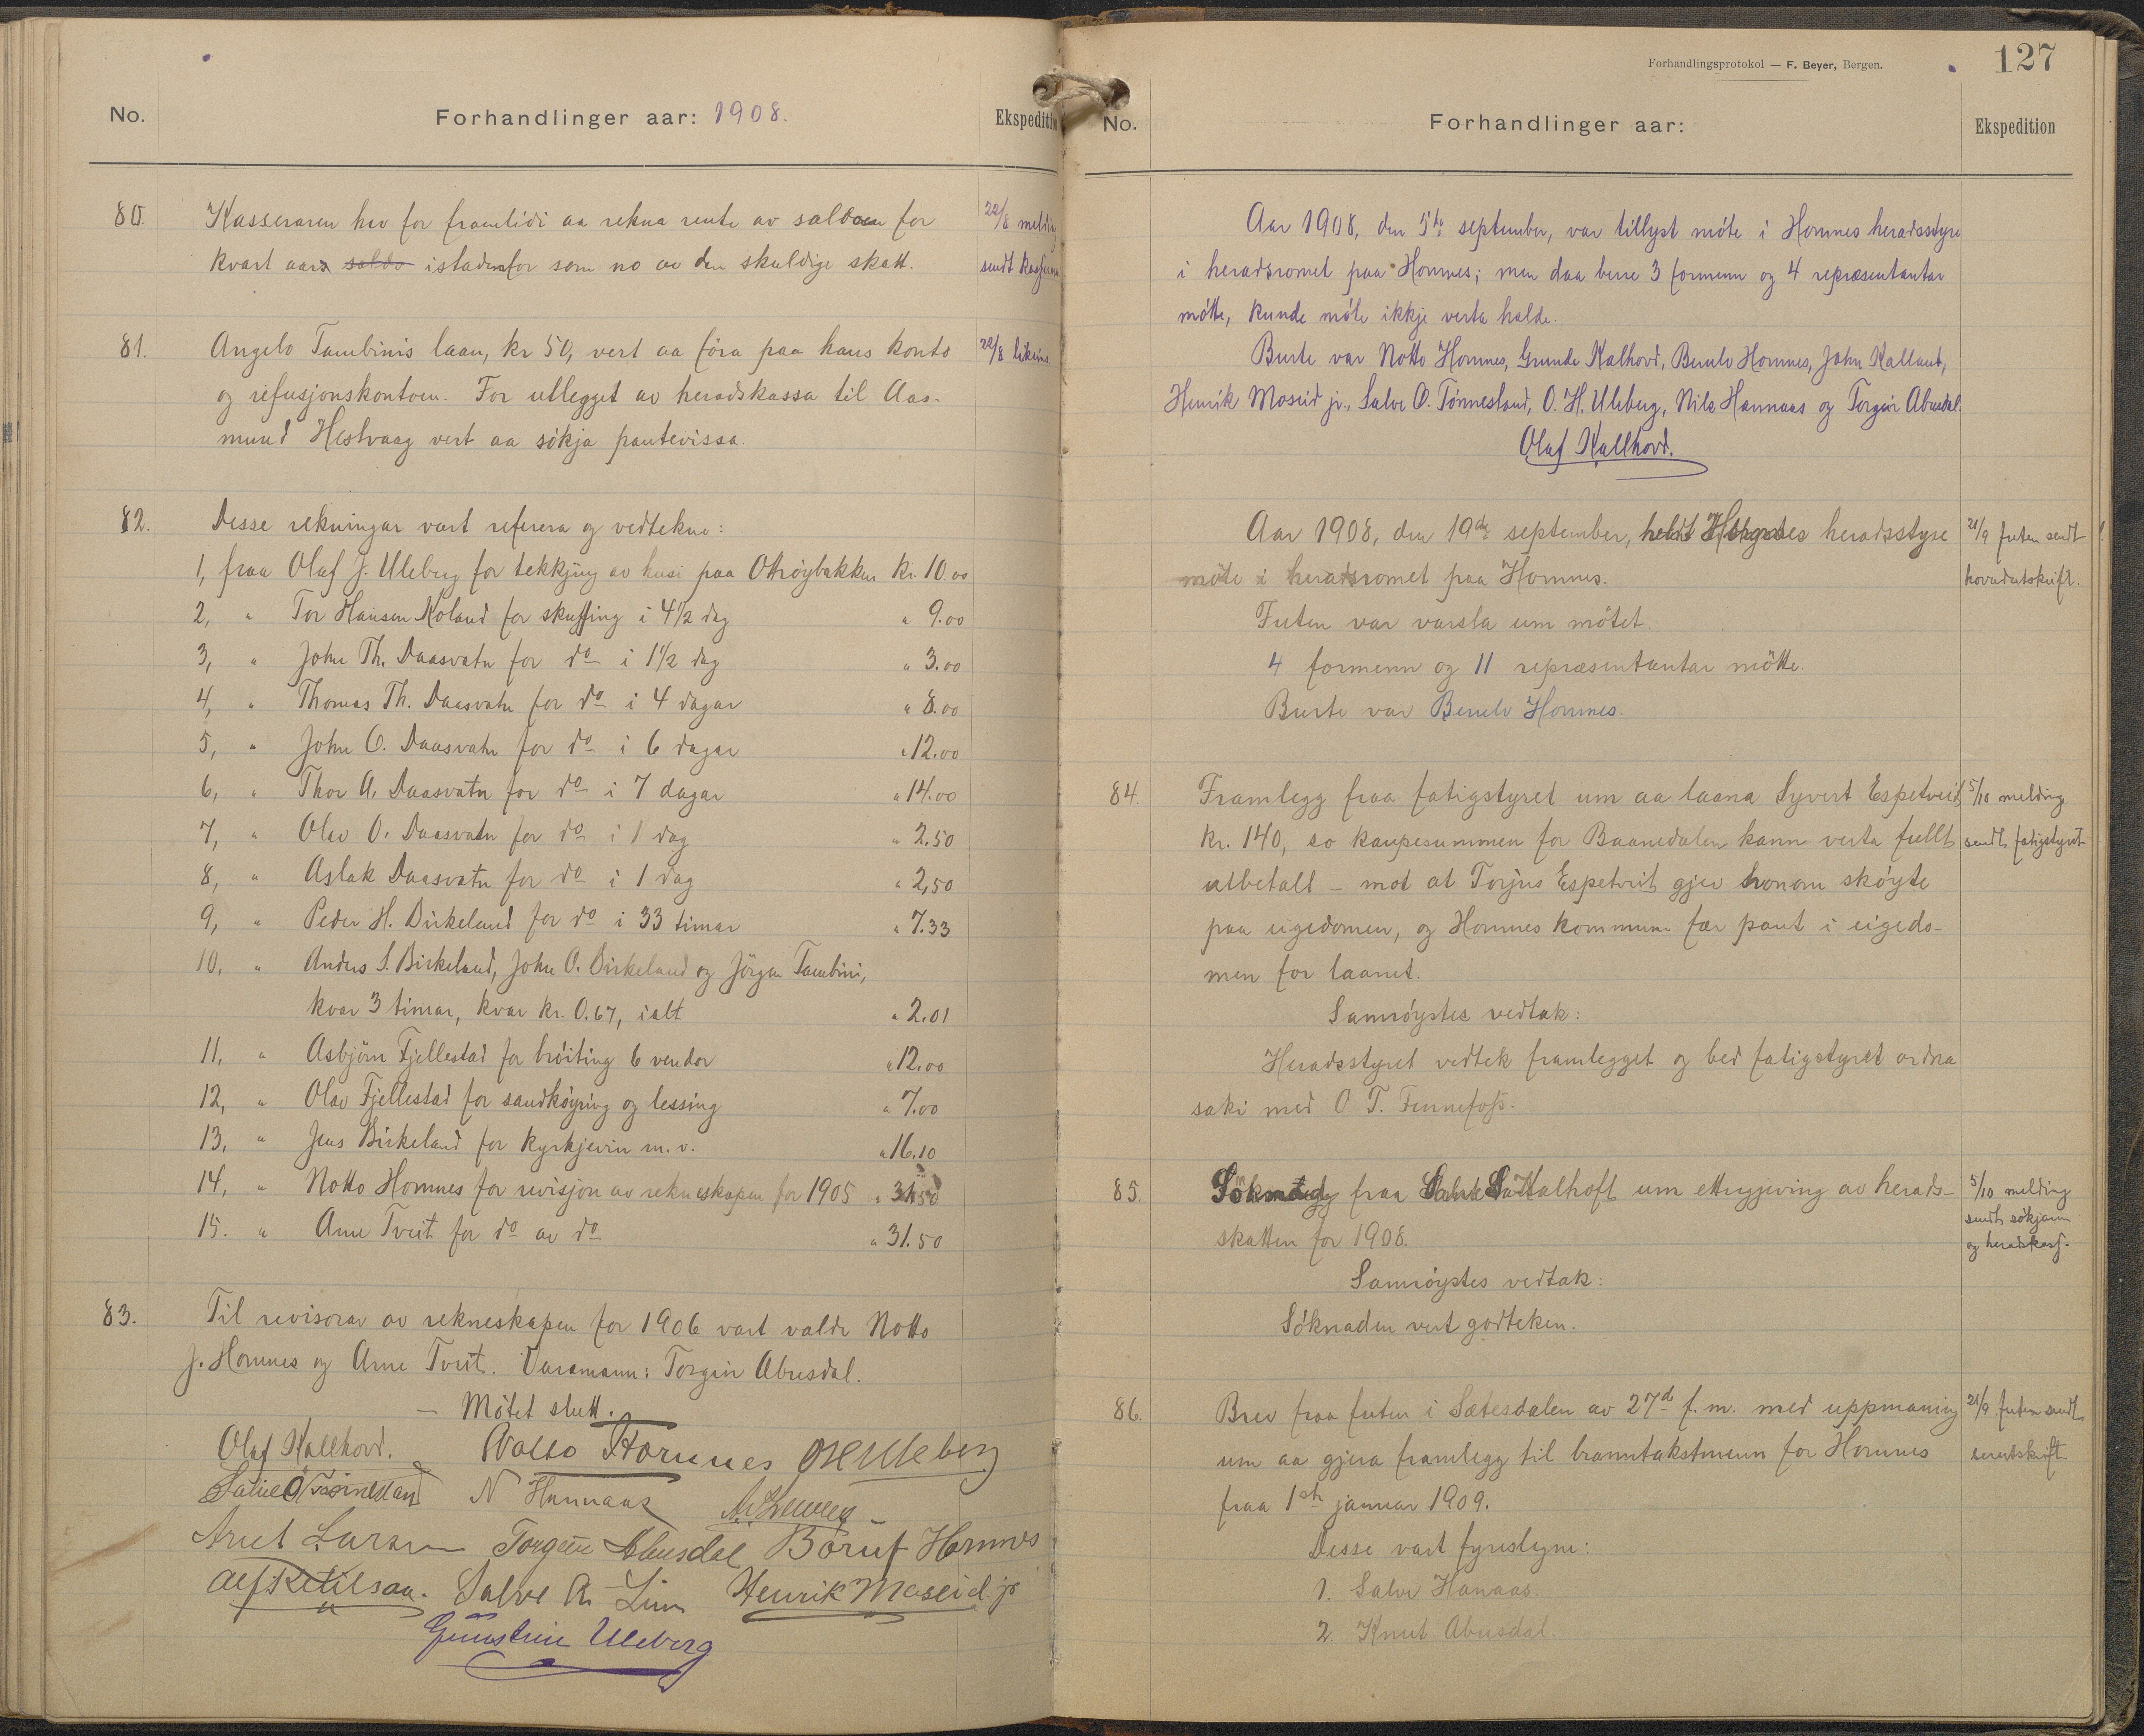 No.
Forhandlinger aar: 1908.
Ekspedition
80. Kasseraren hev for framtidi aa rekna rente av saldoen for
kvart aar saldo istadenfor som no av den skuldige skatt.
22/8 melding
sendt kasseraren
81. Angelo Tambinis laan, kr 50, vert aa föra paa hans konto
og refusjonskontoen. For utlegget av heradskassa til Aas-
mund Hestvaag vert aa sökja pantevissa.
22/8 likeins
82. Desse rekningar vart referera og vedtekne:
1, fraa Olaf J. Uleberg for tekkjing av husi paa Otröybakken kr. 10.00
2, " Tor Hansen Koland for skuffing i 4 1/2 dag " 9.00
3, " John Th. Daasvatn for do i 1 1/2 dag " 3.00
4, " Thomas Th. Daasvatn for do i 4 dagar " 8.00
5, " John O. Daasvatn for do i 6 dagar " 12.00
6, " Thor A. Daasvatn for do i 7 dagar " 14.00
7, " Olav O. Daasvatn for do i 1 dag " 2.50
8, " Aslak Daasvatn for do i 1 dag " 2,50
9, " Peder H. Birkeland for do i 33 timar " 7.33
10, " Anders S. Birkeland, John O. Birkeland og Jörgen Tambini,
kvar 3 timar, kvar kr. 0.67, ialt " 2.01
11, " Asbjörn Fjellestad for bröiting 6 vendor " 12.00
12, " Olav Fjellestad for sandköyring og lessing " 7.00
13, " Jens Birkeland for kyrkjevin m. v. " 16.10
14, " Notto Hornnes for revisjon av rekneskapen for 1905 " 31.50
15. " Arne Tveit for do av do " 31.50
83. Til revisorar av rekneskapen for 1906 vart valde Notto
J. Hornnes og Arne Tveit. Varamann: Torgeir Abusdal.
— Mötet slutt.
Olaf Kallhovd. Notto Hornnes OHUleberg
Salve O Tönnesland N Hannaas
Torgeir Abusdal Börulf Hornnes
Alf Ketilsaa. Salve A. Lien Henrik Moseid. jr
Gunstein Uleberg
Forhandlingsprotokol — F. Beyer, Bergen.
127
No.
Forhandlinger aar:
Ekspedition
Aar 1908, den 5te september, var tillyst möte i Hornnes heradsstyre
i heradsromet paa Hornnes; men daa berre 3 formenn og 4 repræsentantar
mötte, kunde möte ikkje verta halde.
Burte var Notto Hornnes, Gunde Kalhovd, Berulv Hornnes, John Kalland,
Henrik Moseid jr., Salve O. Tönnesland, O. H. Uleberg, Nils Hannaas og Torgeir Abusdal.
Olaf Kallhovd.
Aar 1908, den 19de september, heldt Hornnes heradsstyre
möte i heradsromet paa Hornnes.
21/9 futen sendt
hovudutskrift.
Futen var varsla um mötet.
4 formenn og 11 repræsentantar mötte.
Burte var Berulv Hornnes.
84. Framlegg fraa fatigstyret um aa laana Syvert Espetveit
kr. 140, so kaupesummen for Baanedalen kann verta fullt
utbetalt – mot at Torjus Espetveit gjev honom sköyte
paa eigedomen, og Hornnes kommune fær pant i eigedo-
men for laanet.
5/10 melding
sendt fatigstyret
Samröystes vedtak:
Heradsstyret vedtek framlegget og bed fatigstyret ordna
saki med O. T. Fennefoss.
85. fraa Kalhoft um ettergjeving av herads-
skatten for 1908.
5/10 melding
sendt sökjaren
og heradskass.
Samröystes vedtak:
Söknaden vert godteken.
86. Brev fraa futen i Sætesdalen av 27d f. m. med uppmaning
um aa gjera framlegg til branntakstmenn for Hornnes
fraa 1ste januar 1909.
21/9 futen sendt
serutskrift
Desse vart fyreslegne:
1. Salve Hanaas.
2. Knut Abusdal.